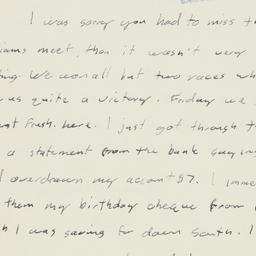 I was sorry you had to miss t
iams meet, tho it wasn't very
ing. We won all but two races wh
us quite a victory. Friday we
at Fresh. here. I just got through t
a statement from the bank saying
I overdrawn my account $7. I imme
them my birthday cheque from
h I was saving for down south. I